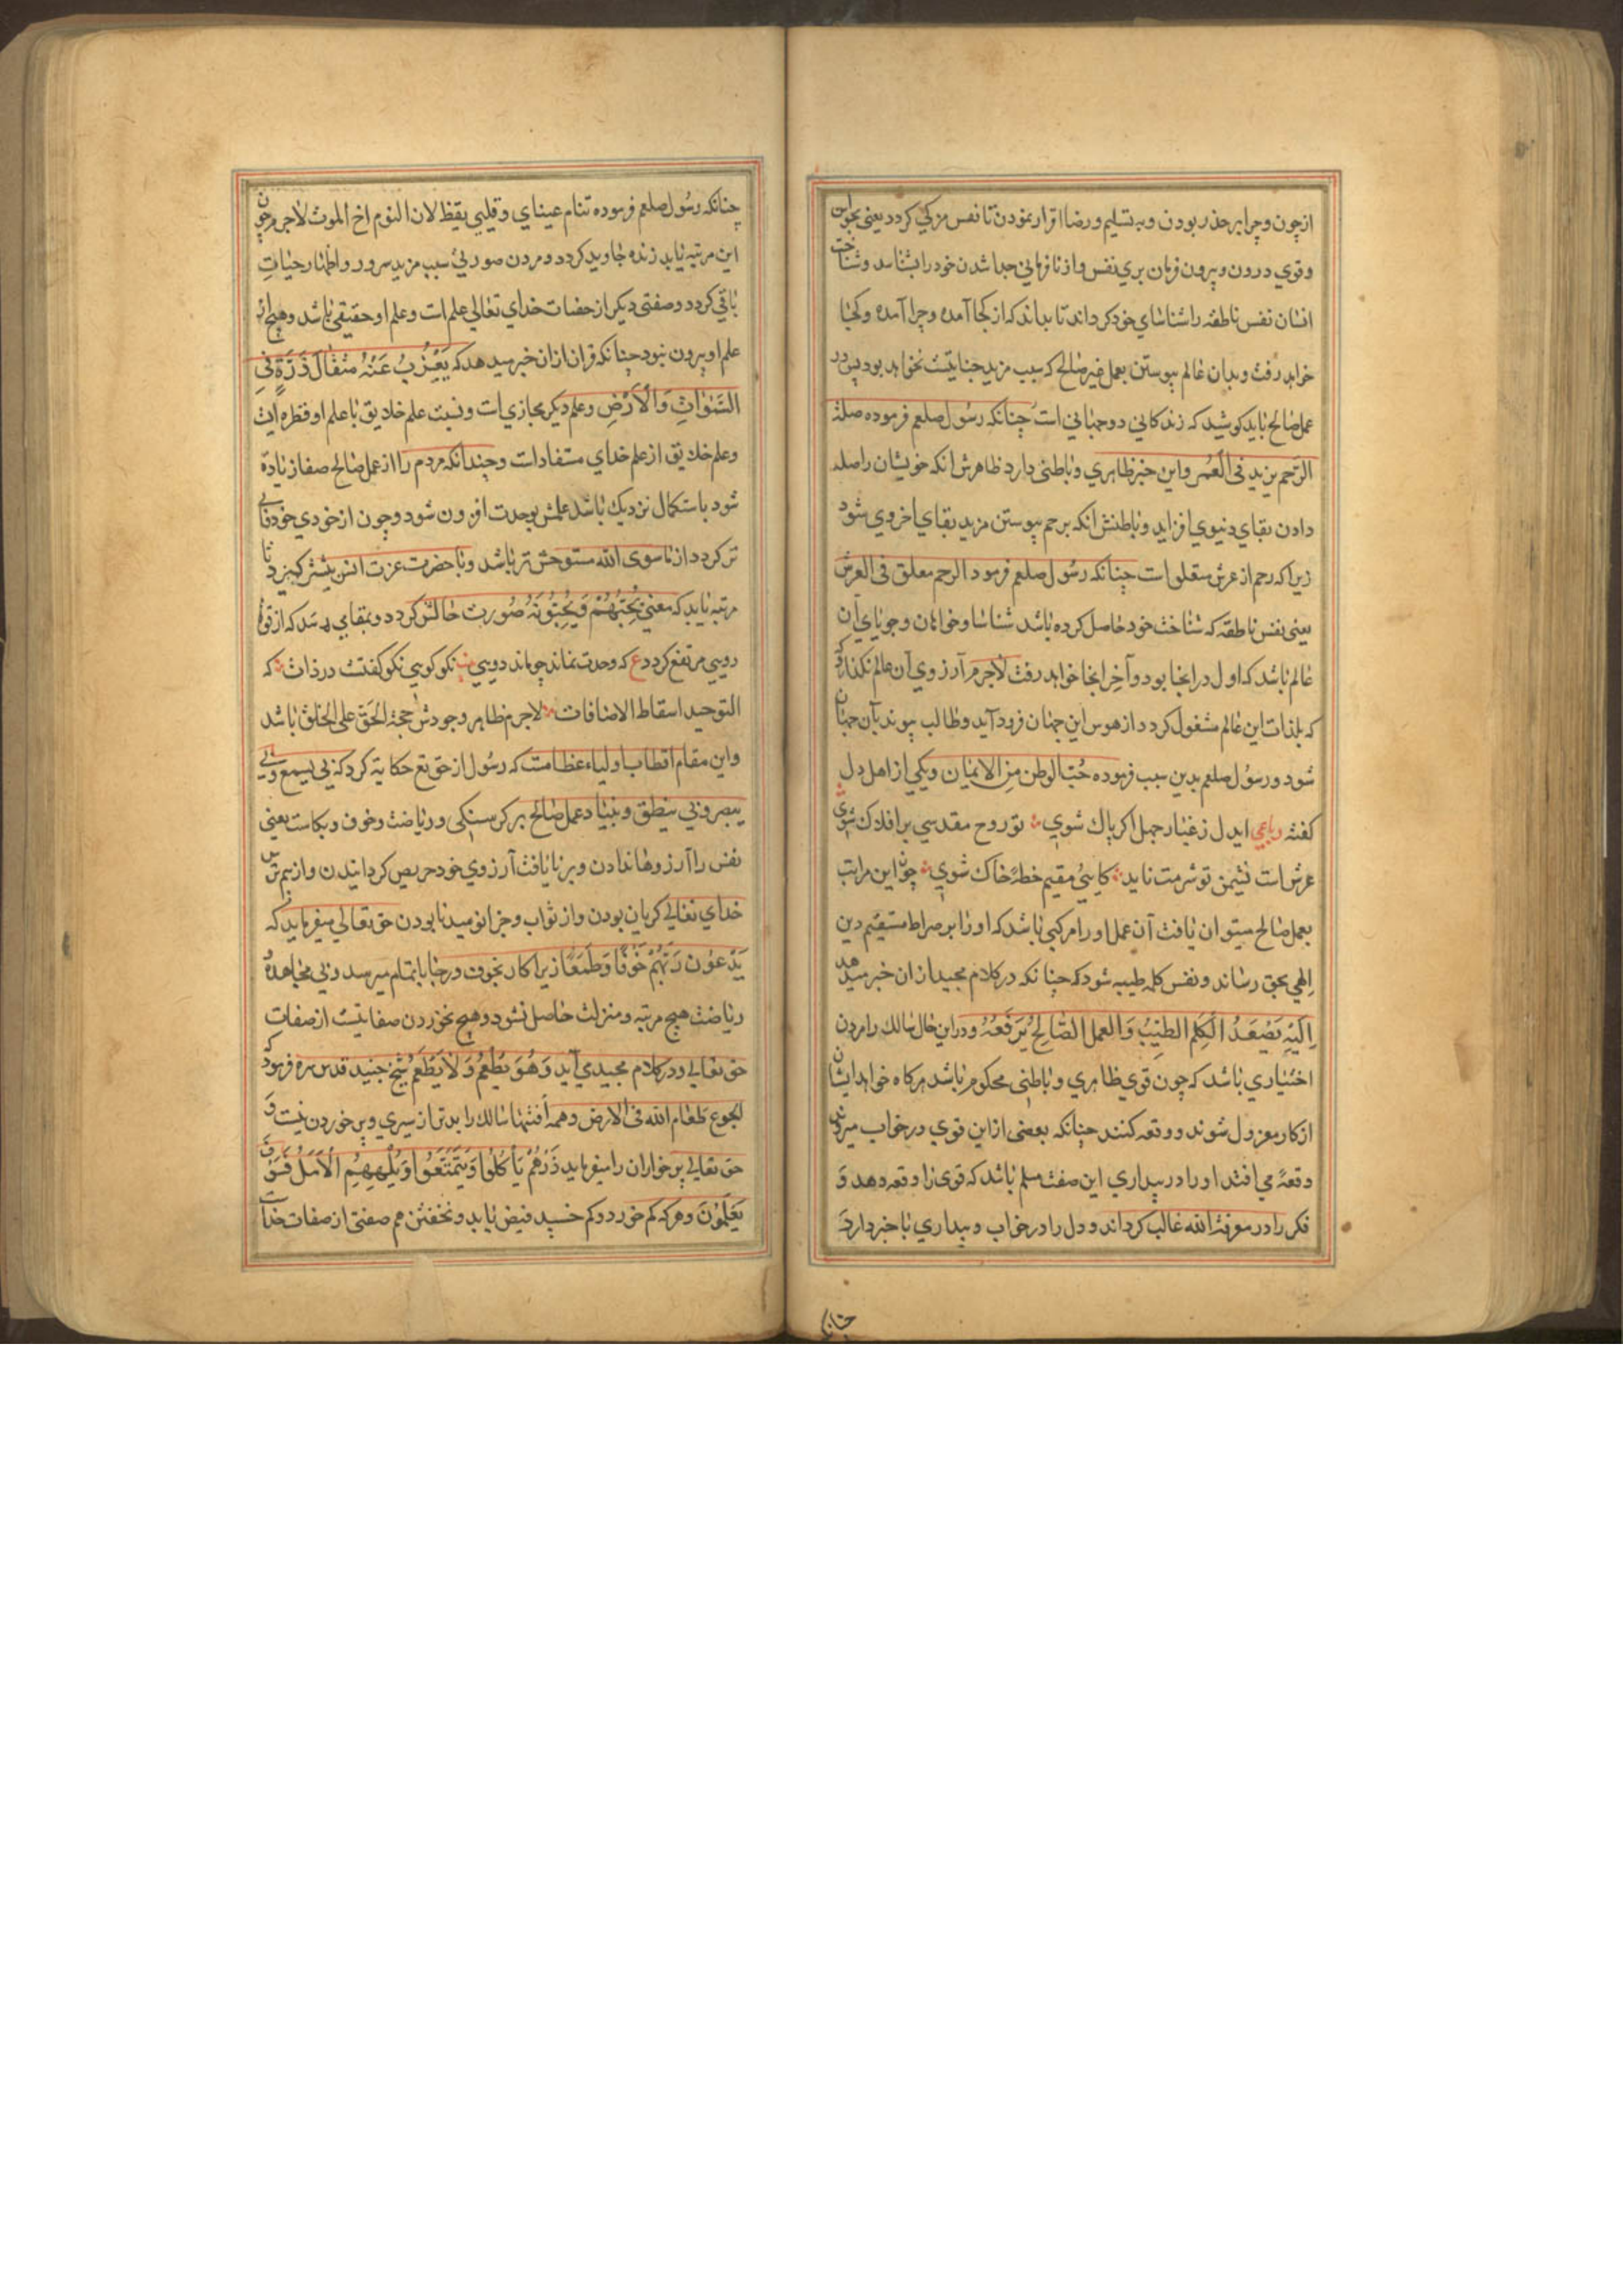 از چون و چرا بر حذر بودن و به تسلیم و رضا اقرار نمودن تا نفس مزکی کردد یعنی بحواس
و قوی درون و بیرون فرمان بری نفس و از نافرمانی جدا شدن خود را بشناسد و شناخت
انسان نفس ناطقه را شناسای خود کرداند تا بداند که از کجا آمده و چرا آمده و کجا
خواهد رفت و بدان عالم پیوستن بعمل غیر صالح که سبب مزید جنایتست نخواهد بود پس در
عمل صالح باید کوشید که زندکانی دو جهانی است چنانکه رسول صلعم فرموده صلة
الرحم یزید فی العمر و این خبر ظاهری و باطنی دارد ظاهرش انکه خویشان را صله
دادن بقای دنیوی افزاید و باطنش انکه برحم پیوستن مزید بقای اخروی شود
زیرا که رحم از عرش متعلق است چنانکه رسول صلعم فرمود الرحم معلق فی العرش
یعنی نفس ناطقه که شناخت خود حاصل کرده باشد شناسا و خواهان و جویای آن
عالم باشد که اول در اینجا بود و آخر اینجا خواهد رفت لاجرم آرزوی آن عالم نکذارد
که بلذات این عالم مشغول کردد از هوس این جهان فرود آید و طالب پیوند بآن جهان
شود و رسول صلعم بدین سبب فرموده حب الوطن من الایمان و یکی از اهل دل
کفته رباعی ایدل ز غبار جهل اکر پاک شوی تو روح مقدسی بر افلاک شوی
عرش است نشیمن تو شرمت ناید کایی مقیم خطۀ خاک شوی چون این مراتب
بعمل صالح میتوان یافت آن عمل او را مرکبی باشد که او را بر صراط مستقیم دین
الهی بحق رساند و نفس کلمه طیبه شود که چنانکه در کلام مجید از ان خبر میدهد
اِلَیْهِ یَصْعَدُ الْکَلِمُ الطَّیِّبُ وَالعمل الصَّالِحُ یَرْفَعُهُ و در این حال سالک را مردن
اختیاری باشد که چون قوی ظاهری و باطنی محکوم باشد هر کاه خواهد ایشان
از کار معزول شوند و وقعه کنند چنانکه بعضی از این قوی در خواب
وقعۀ می افتد او را در بیداری این صفت مسلم باشد که قوی را وقعه دهد و
فکر را در معرفة الله غالب کرداند و دل را در خواب و بیداری با خبر دارد
چنانکه
چنانکه رسول صلعم فرموده تنام عینای و قلبی یقظ لان النوم اخ الموت لاجرم چون
این مرتبه یابد زنده جاوید کردد و مردن صوری سبب مزید سرور و اظهار حیات
باقی کردد و صفتی دیکر از صفات خدای تعالی علم است و علم او حقیقی باشد و هیچ از
علم او بیرون نبود چنانکه قران ازان خبر میدهد که یَعْزُبُ عَنْهُ مثقالَ ذَرَّةٍ فی
السَّمٰوَاتِ وَالْاَرْضِ و علم دیکر مجازی است و نسبت علم خلایق با علم او قطره ایست
و علم خلایق از علم خدای مستفادات و چندانکه مردم را از عمل صالح صفا زیاده
شود باستکمال نزدیک باشد علمش بوحدت افزون شود و چون از خودی خود فانی
تر کردد از ماسوی الله مستوحش تر باشد و با حضرت عزت انس بیشتر کیرد تا
مرتبه یابد که معنی یُحِبُّهُمْ وَیُحِبُّونَهُ صورت حالش کردد و بمقامی رسد که از قوۀ
دویی مرتفع کردد ع که وحدت نماند چو ماند دویی نکو کوی نکو کفتست در ذات که
التوحید اسقاط الاضافات لاجرم ظاهر وجودش حجة الحق علی الخلق باشد
و این مقام اقطاب اولیاء عظامت که رسول از حق تع حکایة کرد که بی یسمع و بی
یبصر و بی ینطق و بنیاد عمل صالح بر کرسنکی و ریاضت و خوف و بکاست یعنی
نفس را آرزوها نادادن و بر نایافت آرزوی خود حریص کردانیدن و از بیم ترس
خدای تعالی کریان بودن و از ثواب و جزا نومید نابودن حق تعالی میفرماید که
یَدْعُونَ رَبَّهُمْ خَوْفًا وَطَمَعًا زیرا کار بخوف و رجا باتمام میرسد و بی مجاهده
ریاضت هیچ مرتبه و منزلت حاصل نشود و هیچ نخوردن صفاتیست از صفات
حق تعالی و در کلام مجید می آید وَهُوَ یُطْعِمُ وَلَا یُطْعَمُ شیخ جنید قدس سره فرمود که
الجوع طعام الله فی الارض و همه افتها سالک را بدتر از سیری و پر خوردن نیست و
حق تعالی پر خواران را میفرماید ذَرْهُمْ یَأْکُلُوا وَیَتَمَتَّعُوا وَیُلْهِهِمُ الْاَمَلُ فَسَوْفَ
یَعْلَمُونَ و هر که کم خورد و کم خسبد فیض یابد و نخفتن هم صفتی از صفات خداست